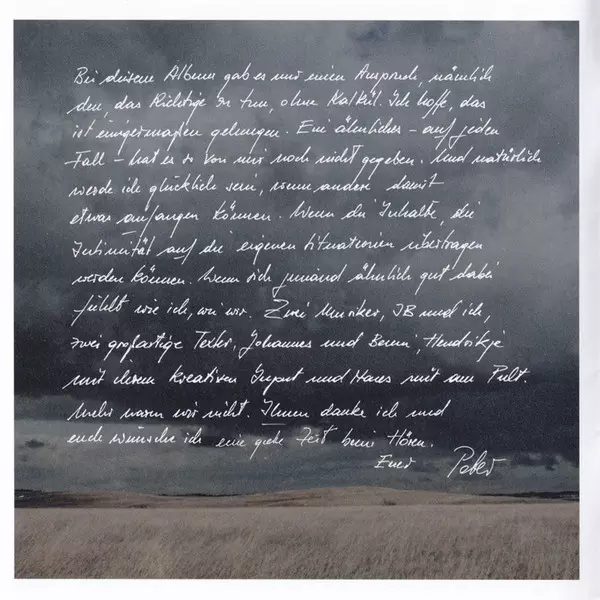 Bei diesem Album gab es nur einen Anspruch, nämlich
den, das Richtige zu tun, ohne Kalkül. Ich hoffe, das
ist einigermaßen gelungen. Ein ähnliches – auf jeden
Fall – hat es so von mir noch nicht gegeben. Und natürlich
werde ich glücklich sein, wenn andere damit
etwas anfangen können. Wenn die Inhalte, die
Intimität auf die eigenen Situationen übertragen
werden können. Wenn sich jemand ähnlich gut dabei
fühlt wie ich, wie wir. Zwei Musiker, JB und ich,
zwei großartige Texter, Johannes und Benni, Hendrikje
mit ihrem kreativen Input und Hares mit am Pult.
Mehr waren wir nicht. Ihnen danke ich und
euch wünsche ich eine gute Zeit beim Hören.
Euer Peter